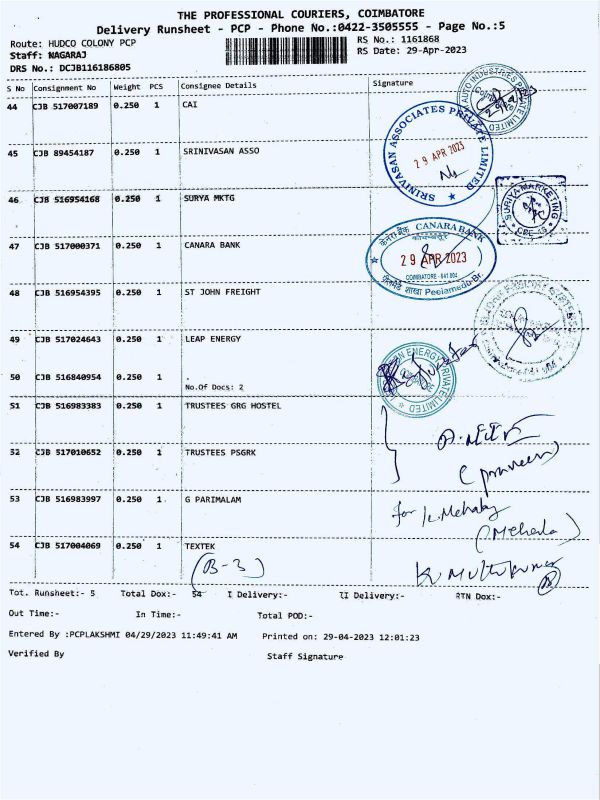 THE PROFESSIONAL COURIERS, COIMBATORE
Delivery Runsheet - PCP - Phone No.:0422-3505555 - Page No.:5
Route: HUDCO COLONY PCP RS No.: 1161868
Staff: NAGARAJ RS Date: 29-Apr-2023
DRS No.: DCJB116186805
S No Consignment No Weight PCS Consignee Details Signature
44 CJB 517007189 0.250 1 CAI
AUTO INDUSTRIES PRIVATE LIMITED
45 CJB 89454187 0.250 1 SRINIVASAN ASSO
SRINIVASAN ASSOCIATES PRIVATE LIMITED
29 APR 2023
46 CJB 516954168 0.250 1 SURYA MKTG
SURIYA MARKETING
47 CJB 517000371 0.250 1 CANARA BANK
केनरा बैंक CANARA BANK
29 APR 2023
COIMBATORE - 641 004
शाखा Peelamedu Br.
48 CJB 516954395 0.250 1 ST JOHN FREIGHT
49 CJB 517024643 0.250 1 LEAP ENERGY
ENERGY PRIVATE LIMITED
50 CJB 516840954 0.250 1 .
No.Of Docs: 2
51 CJB 516983383 0.250 1 TRUSTEES GRG HOSTEL
52 CJB 517010652 0.250 1 TRUSTEES PSGRK
(praveen)
53 CJB 516983997 0.250 1 G PARIMALAM
for K. Mehala
(Mehala)
54 CJB 517004069 0.250 1 TEXTEK
(B-3)
K. Muthukumar
Tot. Runsheet:- 5 Total Dox:- 54 I Delivery:- II Delivery:- RTN Dox:-
Out Time:- In Time:- Total POD:-
Entered By :PCPLAKSHMI 04/29/2023 11:49:41 AM Printed on: 29-04-2023 12:01:23
Verified By Staff Signature